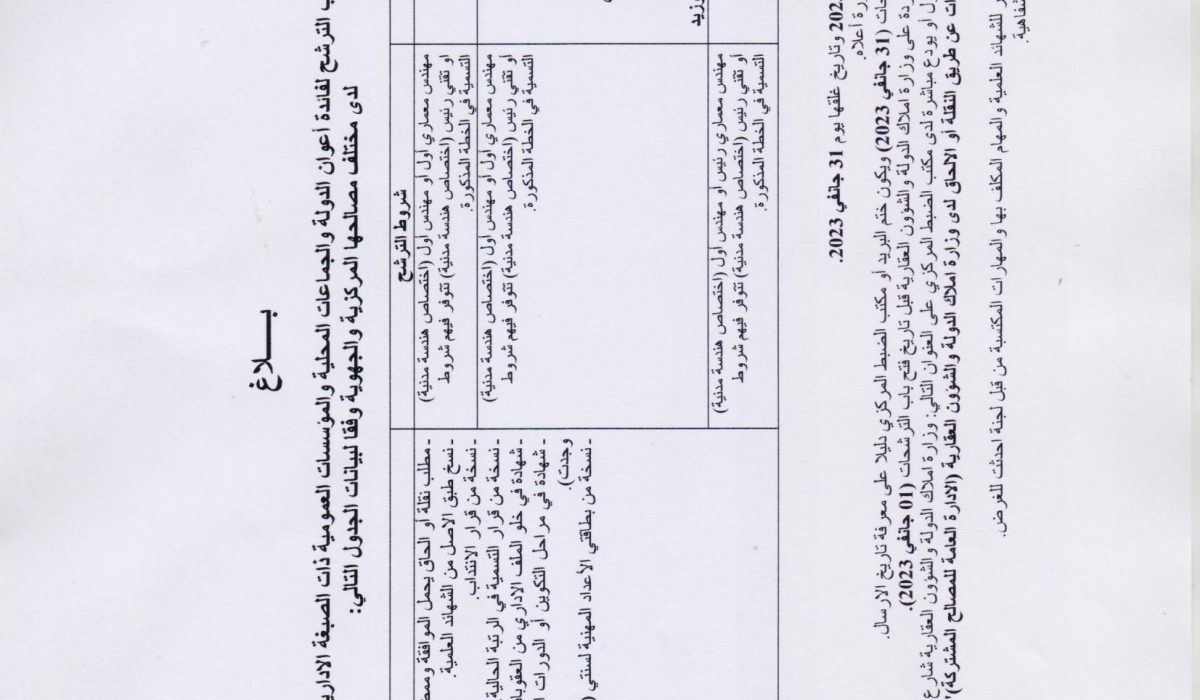 بـــلاغ
الترشح لفائدة أعوان الدولة والجماعات المحلية والمؤسسات العمومية ذات الصبغة
لدى مختلف مصالحها المركزية والجهوية وفقا لبيانات الجدول التالي:
شروط الترشح
مهندس معماري أول أو مهندس أول (اختصاص هندسة مدنية)
أو تقني رئيس (اختصاص هندسة مدنية) تتوفر فيهم شروط
التسمية في الخطة المذكورة.
مهندس معماري أول أو مهندس أول (اختصاص هندسة مدنية)
أو تقني رئيس (اختصاص هندسة مدنية) تتوفر فيهم شروط
التسمية في الخطة المذكورة.
مهندس معماري رئيس أو مهندس أول (اختصاص هندسة مدنية)
أو تقني رئيس (اختصاص هندسة مدنية) تتوفر فيهم شروط
التسمية في الخطة المذكورة.
- مطلب نقلة أو الحاق يحمل الموافقة
- نسخ طبق الاصل من الشهائد العلمية.
- نسخة من قرار الانتداب.
- نسخة من قرار التسمية في الرتبة الحالية
- شهادة في خلو الملف الاداري من
- شهادة في مراحل التكوين أو الدورات
وجدت).
- نسخة من بطاقتي الأعداد المهنية لسنتي
وتاريخ غلقها يوم 31 جانفي 2023.
أعلاه.
(31 جانفي 2023) ويكون ختم البريد أو مكتب الضبط المركزي دليلا على معرفة تاريخ الارسال.
على وزارة املاك الدولة والشؤون العقارية قبل تاريخ فتح باب الترشحات (01 جانفي 2023).
أو يودع مباشرة لدى مكتب الضبط المركزي على العنوان التالي: وزارة املاك الدولة والشؤون العقارية شارع
عن طريق النقلة أو الالحاق لدى وزارة املاك الدولة والشؤون العقارية (الادارة العامة للمصالح المشتركة)"
للشهائد العلمية والمهام المكلف بها والمهارات المكتسبة من قبل لجنة احدثت للغرض.